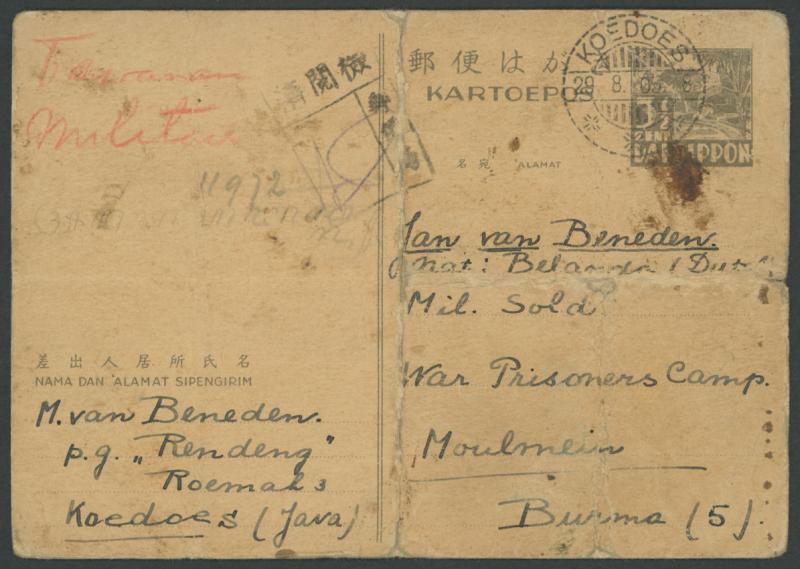 Tawanan
Militair
検閲済
11912
差出人居所氏名
NAMA DAN ALAMAT SIPENGIRIM
M. van Beneden.
p.g. „Rendeng"
Roemah 3
Koedoes (Java)
郵便はが
KARTOEPO
KOEDOES
3½
SEN
DAI NIPPON
名宛 ALAMAT
Jan van Beneden.
Nat: Belanda (Dutch
Mil. Sold
War Prisoners Camp.
Moulmein
Burma (5).